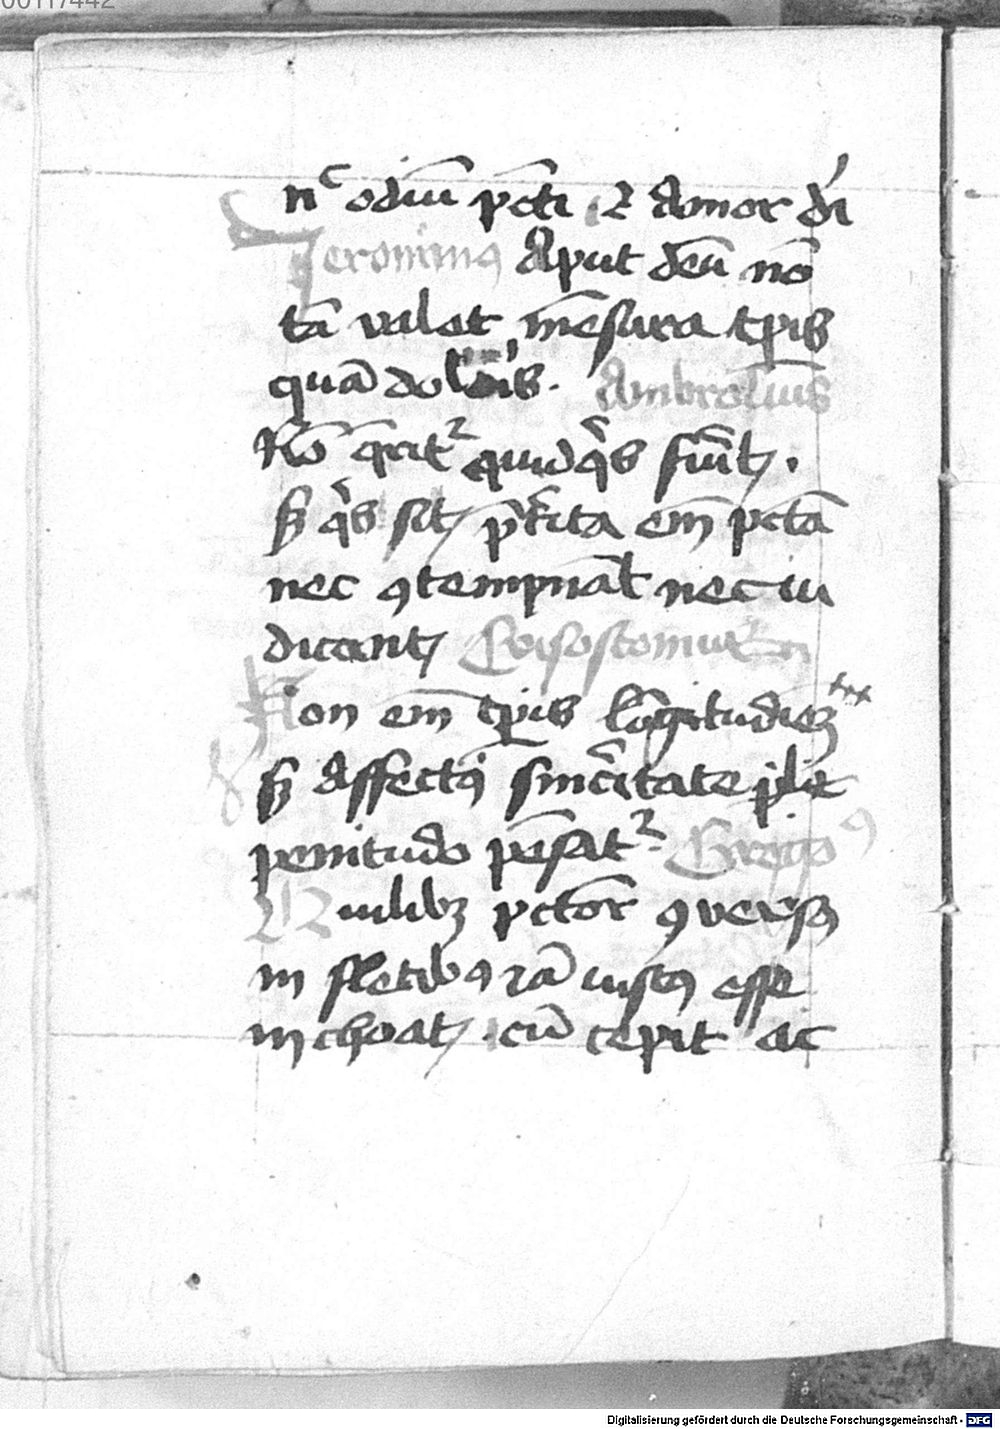 00117442
nͨ odiū pcti · ⁊ Amor di
Jeronimꝰ Aput deū nō
tā valet mēsura tp̄is
quā doloris. Ambrosius
Nō q̄ritᷣ quid qͥs fuit.
sꝫ qͥs sit p̄tita em̄ pctā
nec ꝯtempnāt nec iu
dicant Crisostomus
Non em̄ tp̄is lōgitudīeꝫ
sꝫ Affectꝰ sinc̄itate
penitudo pēsatᷣ Gregoꝰ
pctor ꝯuersꝰ
in fletibꝰ iā iustꝰ esse
inchoat. cū cepit ac
Digitalisierung gefördert durch die Deutsche Forschungsgemeinschaft - DFG